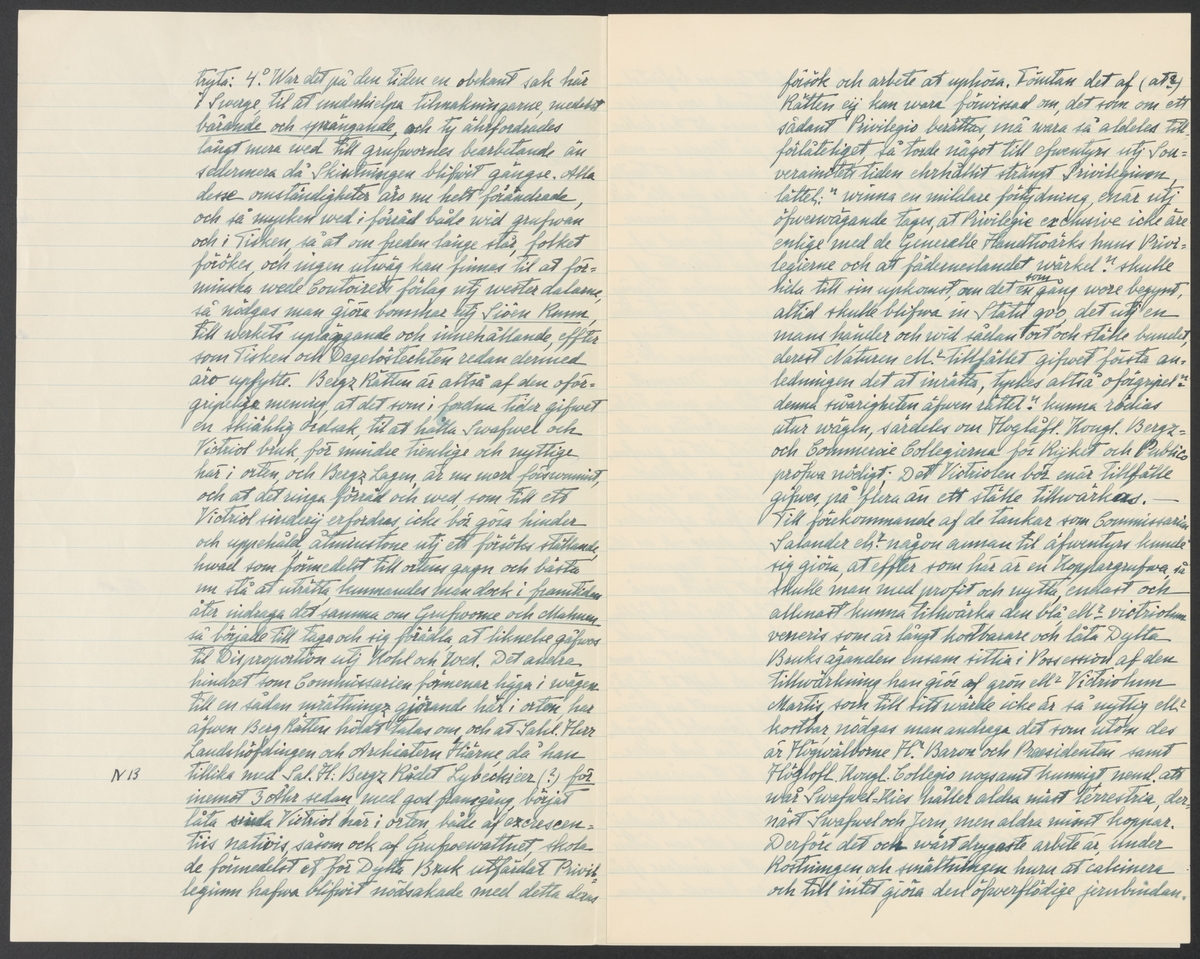 tryta: 4º War det på den tiden en obekant sak här
i Swerge, til at underhielpa tilmakningarne, medelst
börande och sprängande, och ty åhrfordrades
långt mera wed till grufwornes bearbetande än
sedermera då Skiutningen blifwit gängse. Alla
desse omständigheter äro nu helt förändrade,
och så mycken wed i föråd både wid grufwan
och i Tisken, så at om freden länge står, folket
förökes, och ingen utwäg kan finnas til at för=
minska wede Contoirets förlag utj wester dalarne,
så nödgas man giöra bommar utj Siöen Runn,
till werkets upläggande och innehållande, effter
som Tisken och Dagelöstechten redan dermed
äro upfyllte. Bergz Rätten är altså af den oför=
gripelige mening, at det som i fordna tider gifwet
en skiählig orsak, til at hålla Swafwel och
Victriol bruk, för mindre tienlige och nyttige
här i orten, och Bergz Lagen, är nu mera försvunnit,
och at det ringa förråd och wed som till ett
Victriol sinderij erfordras, icke bör göra hinder
och uppehåld, åtminstone utj ett försöks ställande,
hwad som förmedelst till ortens gagn och bästa
nu stå at uträtta, kunnandes man dock i framtiden
åter indraga det samma om Grufworne och Malmen,
så började till taga och sig förädla at liknelse gåfwes
til Disproportion utj Kohl och Wed. Det andra
hindret som Commissarien förmenar ligga i wägen
till en sådan inrättning giörande här i orten har
äfwen Berg Rätten hördt talas om, och at Sahl. Herr
Landshöfdingen och Archiatern Hiärne, då han
tillika med Sal. H: Bergz Rådet Lybechier (?) för
N 13
inemot 30 Ahr sedan, med god framgång, börjat
låta sinda Victriol här i orten, både af excrescen=
tiis nativis, såsom ock af Grufwewattnet, skola
de förmedelst et för Dylta Bruk utfärdat Privi=
legium hafwa blifwit nödsakade med detta deras
försök och arbete at uphöra. Förutan det af (at?)
Rätten ej kan wara förwissad om, det som om ett
sådant Privilegio berättas, må wara så aldeles till=
förlåteligit, så torde något till efwentyrs utj Sou=
verainitets tiden ehrhållit strängt Privilegium,
lättel:n winna en mildare förtydning, enär utj
öfwerwägande tages, at Privilegie exclusive icke äre
enlige med de Generelle Handtwärks huus Privi=
legierne och att fäderneslandet wärkel:n skulle
lida till sin upkomst, om det som en gång wore begynt,
altid skulle blifwa in Statu quo det utj en
mans händer och wid sådan ort och ställe bundet,
derest Naturen elr tillfället gifwet första an=
ledningen det at inrätta, tyckes altså oförgripel:n
denna swårigheten äfwen rättel:n kunna rödias
utur wägen, särdeles om Höglåfl. Kongl. Bergz=
och Commercie Collegierna för Rijket och Publico
pröfwa nödigt, Det Victriolen bör enär tillfälle
gifwes, på flera än ett ställe tillwärkas. —
Till förekommande af de tankar som Commissarien
Salander elr någon annan til äfwentyrs kunde
sig giöra, at effter som här är en Koppargrufwa, så
skulle man med profit och nytta, endast och
allenast kunna tillwärka den blå elr victriolum
veneris som är långt kostbarare och låta Dylta
Bruksäganden ensam sittia i Possession af den
tillwärkning han giör af grön elr Victriolum
Martis, som till sitt wärde icke är så nyttig elr
kostbar nödgas man andraga det som utom des
är Högwälborne Hr Baron och Præsidenten samt
Höglofl. Kongl. Collegio nogsamt kunnigt neml. att
wår Swafwel=Kies håller aldra mäst terrestria, der=
näst Swafwel och Jern, men aldra minst koppar.
Derföre det och wårt drygaste arbete är, under
Rostningen och smältningen huru at calcinera
och till intet giöra den öfwerflödige jernbindan.